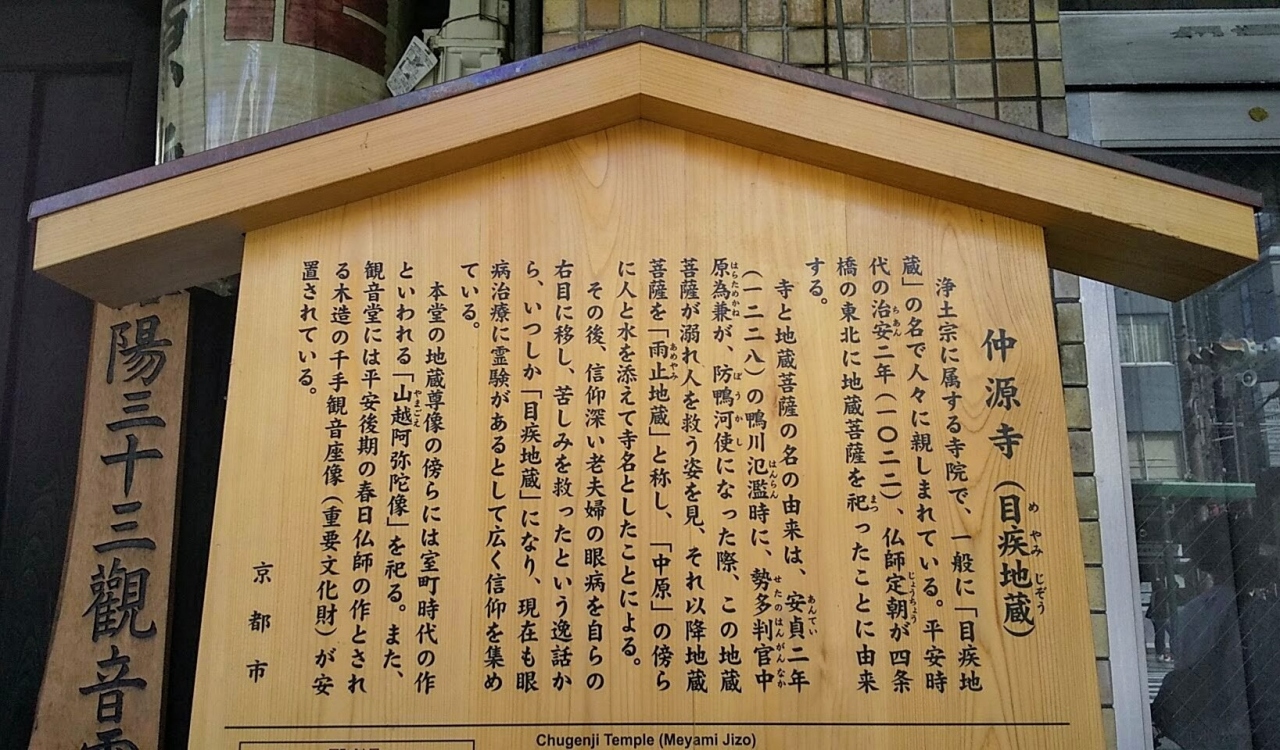 仲源寺（目疾地蔵）
浄土宗に属する寺院で、一般に「目疾地
蔵」の名で人々に親しまれている。平安時
代の治安二年（一〇二二）、仏師定朝が四条
橋の東北に地蔵菩薩を祀ったことに由来
する。
寺と地蔵菩薩の名の由来は、安貞二年
（一二二八）の鴨川氾濫時に、勢多判官中
原為兼が、防鴨河使になった際、この地蔵
菩薩が溺れ人を救う姿を見、それ以降地蔵
菩薩を「雨止地蔵」と称し、「中原」の傍ら
に人と水を添えて寺名としたことによる。
その後、信仰深い老夫婦の眼病を自らの
右目に移し、苦しみを救ったという逸話か
ら、いつしか「目疾地蔵」になり、現在も眼
病治療に霊験があるとして広く信仰を集め
ている。
本堂の地蔵尊像の傍らには室町時代の作
といわれる「山越阿弥陀像」を祀る。また、
観音堂には平安後期の春日仏師の作とされ
る木造の千手観音座像（重要文化財）が安
置されている。
京都市
Chugenji Temple (Meyami Jizo)
陽三十三觀音